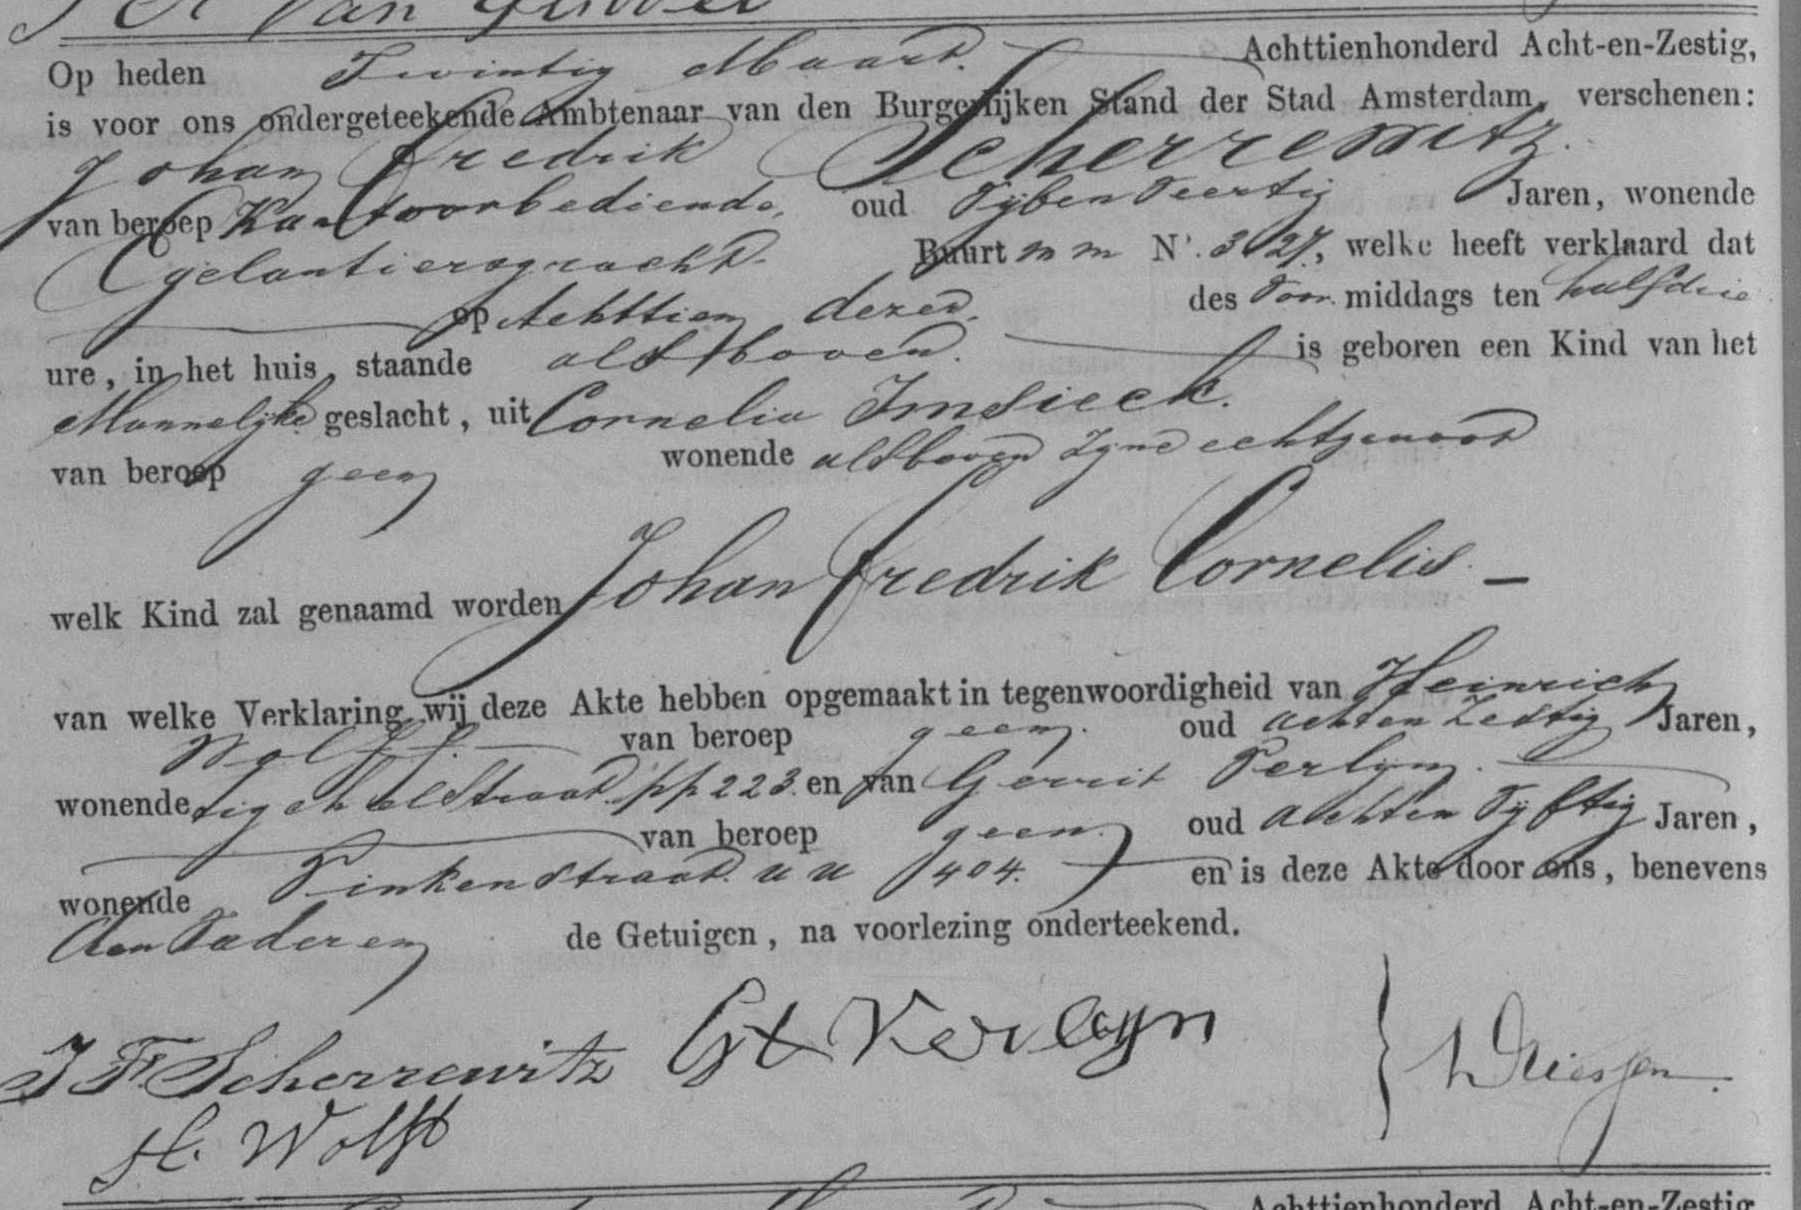 Op heden Twintig Maart. Achttienhonderd Acht-en-Zestig,
is voor ons ondergeteekende Ambtenaar van den Burgerlijken Stand der Stad Amsterdam, verschenen:
Johan Fredrik Scherrewitz.
van beroep Kantoorbediende, oud Vyfen Veertig Jaren, wonende
Egelantiersgracht. Buurt m m N. 327, welke heeft verklaard dat
op Achttien dezer. des Voor middags ten halfdrie
ure, in het huis, staande als boven. is geboren een Kind van het
Mannelijke geslacht, uit Cornelia Imsieck.
van beroep geen wonende alsboven Zyne echtgenoot
welk Kind zal genaamd worden Johan Fredrik Cornelis —
van welke Verklaring wij deze Akte hebben opgemaakt in tegenwoordigheid van Heinrich
Wolff. van beroep geen. oud achten Zestig Jaren,
wonende pp 223. en van Gerrit Verlyn.
van beroep geen. oud achten Vyftig Jaren,
wonende Vinkenstraat. u u 404. en is deze Akte door ons, benevens
den Vader en de Getuigen, na voorlezing onderteekend.
J F Scherrewitz Gt Verleyn
H. Wolff
Achttienhonderd Acht-en-Zestig